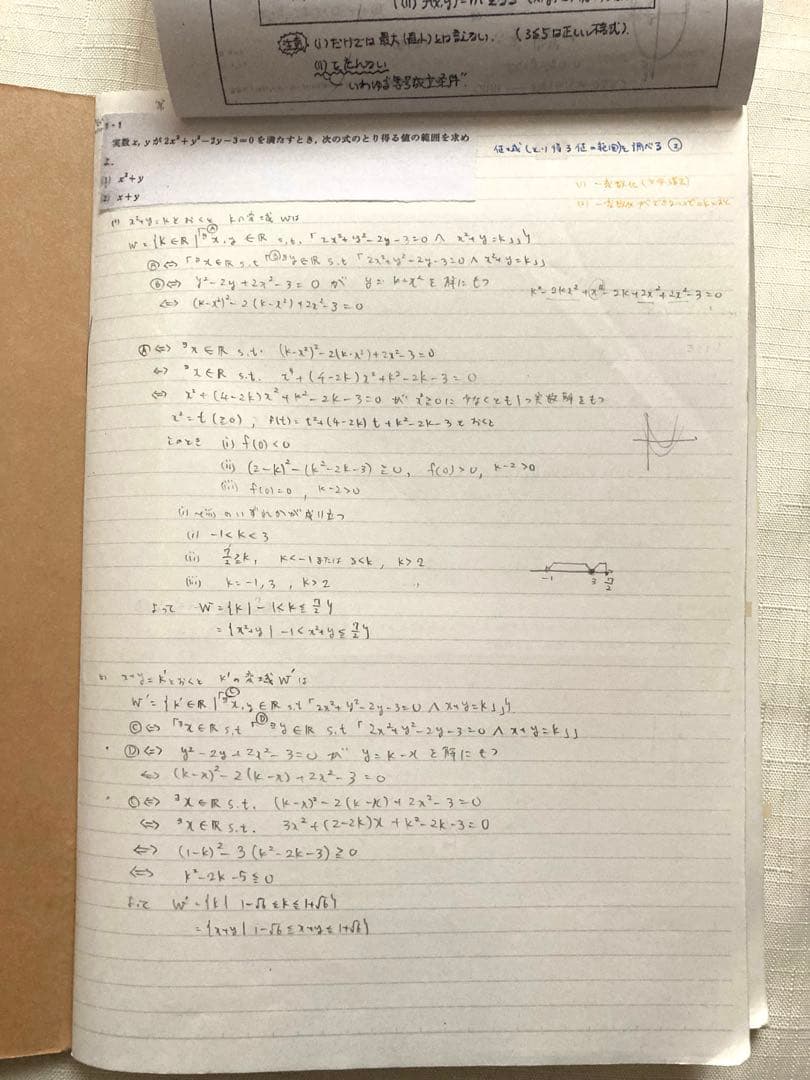 注意 (i)だけでは最大(最小)とは言えない. (3≦5は正しい不等式).
いわゆる"等号成立条件".
実数x, yが2x²+y²−2y−3=0を満たすとき, 次の式のとり得る値の範囲を求め
よ.
(1) x²+y
(2) x+y
値域(とり得る値の範囲)を調べる②
(1) x²+y=kとおくと kの変域Wは
W={k∈ℝ|「∃x,y∈ℝ s.t.「2x²+y²−2y−3=0∧x²+y=k」」}
Ⓐ⇔「∃x∈ℝ s.t「Ⓑ∃y∈ℝ s.t「2x²+y²−2y−3=0∧x²+y=k」」
Ⓑ⇔ y²−2y+2x²−3=0が y=k−x²を解にもつ
k²−2kx²+x⁴−2k+2x²+2x²−3=0
⇔ (k−x²)²−2(k−x²)+2x²−3=0
Ⓐ⇔ ∃x∈ℝ s.t. (k−x²)²−2(k−x²)+2x²−3=0
⇔ ∃x∈ℝ s.t. x⁴+(4−2k)x²+k²−2k−3=0
⇔ x⁴+(4−2k)x²+k²−2k−3=0がx²≧0に少なくとも1つ実数解をもつ
x²=t(≧0), f(t)=t²+(4−2k)t+k²−2k−3とおくと
このとき (i) f(0)<0
(ii) (2−k)²−(k²−2k−3)≧0, f(0)>0, k−2>0
(iii) f(0)=0, k−2>0
(i)~(iii)のいずれかが成り立つ
(i) −1<k<3
(ii) 7/2≧k, k<−1または3<k, k>2
(iii) k=−1,3, k>2
−1 3 7/2
よって W={k|−1<k≦7/2}
={x²+y|−1<x²+y≦7/2}
(2) x+y=k'とおくと k'の変域W'は
W'={k'∈ℝ|「∃x,y∈ℝ s.t「2x²+y²−2y−3=0∧x+y=k」」}
Ⓒ⇔「∃x∈ℝ s.t「Ⓓ∃y∈ℝ s.t「2x²+y²−2y−3=0∧x+y=k」」
Ⓓ⇔ y²−2y+2x²−3=0が y=k−xを解にもつ
⇔ (k−x)²−2(k−x)+2x²−3=0
Ⓒ⇔ ∃x∈ℝ s.t. (k−x)²−2(k−x)+2x²−3=0
⇔ ∃x∈ℝ s.t. 3x²+(2−2k)x+k²−2k−3=0
⇔ (1−k)²−3(k²−2k−3)≧0
⇔ k²−2k−5≦0
よって W'={k|1−√6≦k≦1+√6}
={x+y|1−√6≦x+y≦1+√6}